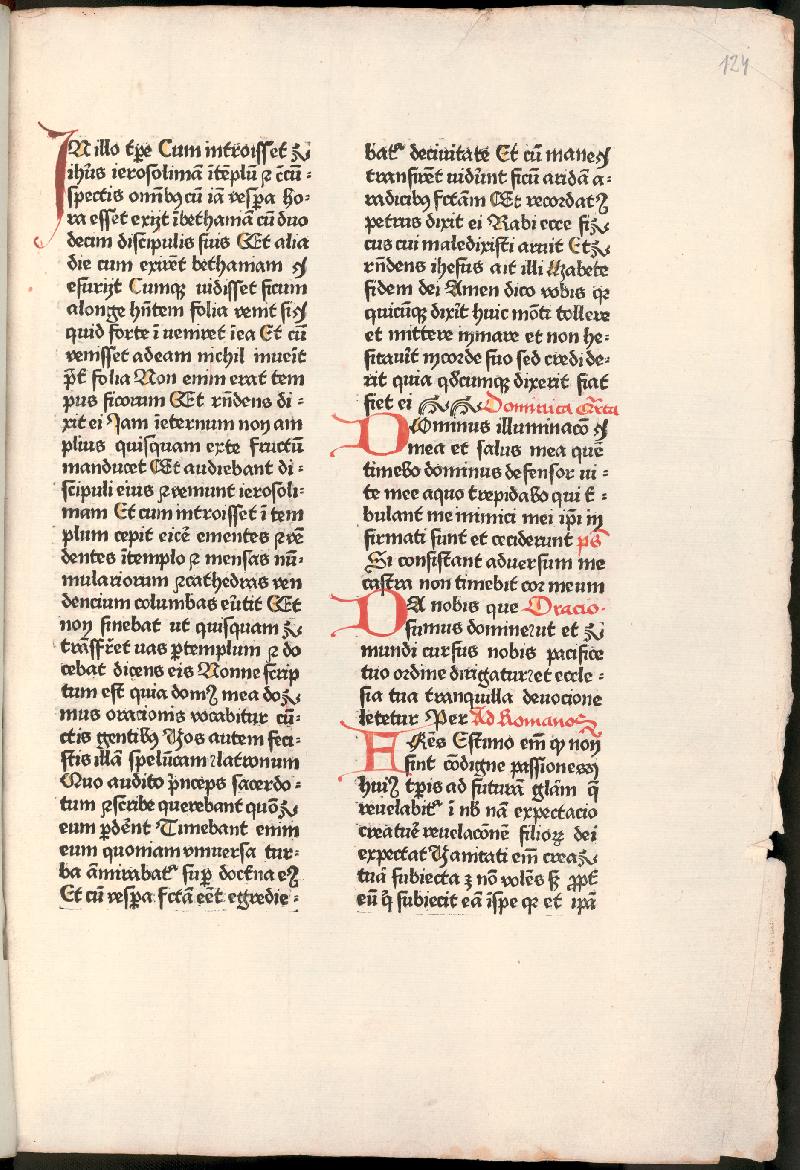 124
IN illo tp̄e Cum introisset
ih̄us ierosolimā ītēplū ⁊ c̄cū-
spectis omībꝰ cū iā vesp̄a ho-
ra esset exijt ī bethaniā cū duo
decim discipulis suis Et alia
die cum exirēt bethaniam
esurijt Cumqꝫ uidisset ficum
alonge hn̄tem folia venit si
quid forte ī ueniret īea Et cū
venisset adeam nichil inuēit
p̄t folia Non enim erat tem
pus ficorum Et rn̄dens di-
xit ei Jam īeternum non am
plius quisquam exte fructū
manducet Et audiebant di-
scipuli eius ⁊ veniunt ierosoli-
mam Et cum introisset ī tem
plum cepit eicē ementes ⁊ vē
dentes ītemplo ⁊ mensas nū-
mulariorum ⁊ cathedras ven
dencium columbas eūtit Et
non sinebat ut quisquam
trāsfr̄et uas ꝑtemplum ⁊ do
cebat dicens eis Nonne scrip
tum est quia domꝰ mea do
mus oracionis vocabitur cū-
ctis gentibꝰ Vos autem feci-
stis illā spelūcam latronum
Quo audito p̄nceps sacerdo-
tum ⁊ scribe querebant quō
eum ꝑdēnt Timebant enim
eum quoniam vniuersa tur-
ba āmirabatᷣ suꝑ doct̄na eꝰ
Et cū vesp̄a fctā eēt egredie-
batᷣ deciuitate Et cū mane
transirēt vidūnt ficū aridā a-
radicibꝰ fctām Et recordatꝰ
petrus dixit ei Rabi ecce fi
cus cui maledixisti aruit Et
rn̄dens ihesus ait illi Habete
fidem dei Amen dico vobis qꝛ
quicūqꝫ dixīt huic mōti tollere
et mittere inmare et non he-
sitauīt incorde suo sed credide-
rit quia qd̄cumqꝫ dixerit fiat
fiet ei Dominica q̄rta
DOminus illuminacō
mea et salus mea quē
timebo dominus defensor ui-
te mee aquo trepidabo qui t̄-
bulant me inimici mei ip̄i in
firmati sunt et ceciderunt ps̄
Si consistant aduersum me
castra non timebit cor meum
DA nobis que Oracio
sumus domine ut et
mundi cursus nobis pacifice
tuo ordine dirigatur et eccle-
sia tua tranquilla deuocione
letetur Per Ad Romanos
FRēs Estimo em̄ qꝫ non
sint cōdigne passiones
huiꝰ tp̄is ad futurā glām q̄
reuelabitᷣ ī nb̄ nā expectacio
creatuē reuelacōnē filioꝝ dei
expectat Vanitati em̄ crea
tuā subiecta ꝫ nō volēs sꝫ ꝓpt̄
eū q̇ subiecit eā īspe qꝛ et ip̄ā